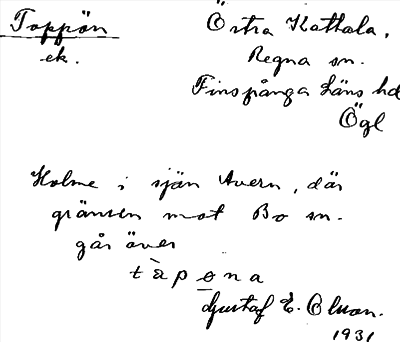 Toppön
ek.
Östra Kattala,
Regna sn.
Finspånga Läns hd
Ögl
Holme i sjön Avern, där
gränsen mot Bo sn.
går över
tàpo̲na
Gustaf E. Olson.
1931